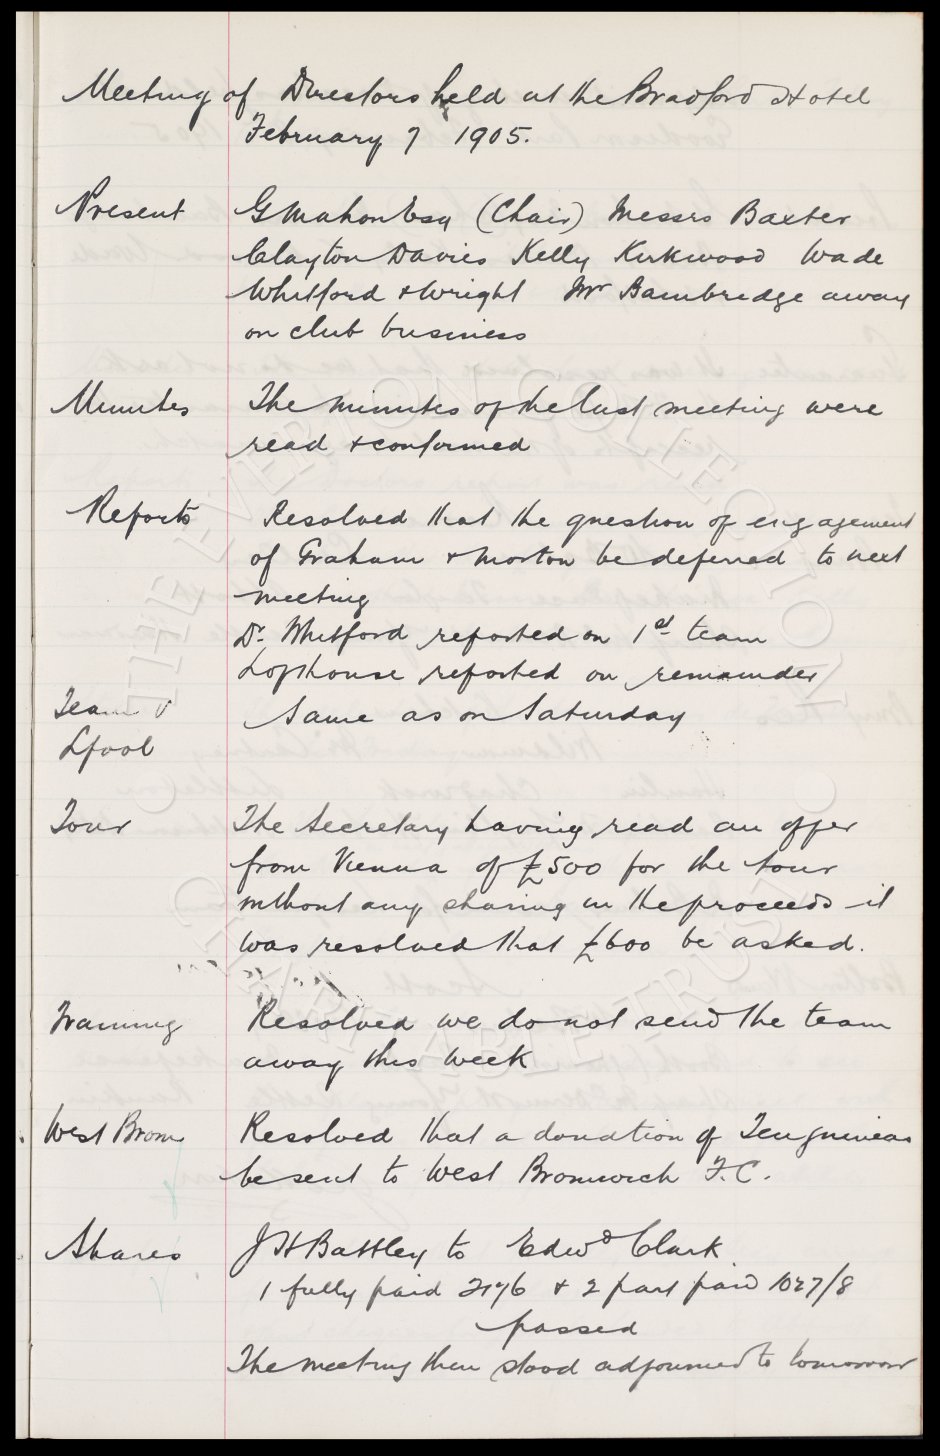 Meeting of Directors held at the Bradford Hotel
February 7 1905.
Present G Mahon Esq (Chair) Messrs Baxter
Clayton Davies Kelly Kirkwood Wade
Whitford & Wright Mr Bainbridge away
on club business
Minutes The minutes of the last meeting were
read & confirmed
Reports Resolved that the question of engagement
of Graham & Morton be deferred to next
meeting
Dr. Whitford reported on 1st team
Lofthouse reported on remainder
Team v Same as on Saturday
Lpool
Tour The Secretary having read an offer
from Vienna of £500 for the tour
without any sharing in the proceeds it
was resolved that £600 be asked.
Training Resolved we do not send the team
away this week
West Brom Resolved that a donation of Ten guineas
be sent to West Bromwich F.C.
Shares J H Battley to Edwd Clark
1 fully paid 2176 & 2 part paid 1027/8
passed
The meeting then stood adjourned to tomorrow
THE EVERTON COLLECTION
CHARITABLE TRUST